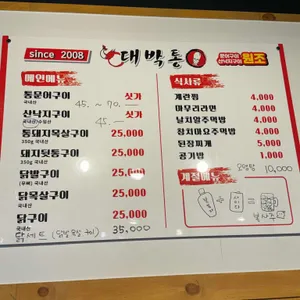 since 2008
대박통
통문어구이
산낙지구이 원조
메인메뉴
통문어구이 싯가
국내산
45. ~ 70.
산낙지구이 싯가
45.
통돼지목살구이 25,000
350g 국내산
돼지뒷통구이 25,000
350g 국내산
닭발구이 25,000
(무뼈) 국내산
닭목살구이 25,000
국내산
닭구이 25,000
국내산
닭세트 35,000
식사류
계란찜 4,000
마무리라면 4,000
날치알주먹밥 4,000
참치마요주먹밥 4,000
된장찌개 5,000
공기밥 1,000
10,000
계절메뉴